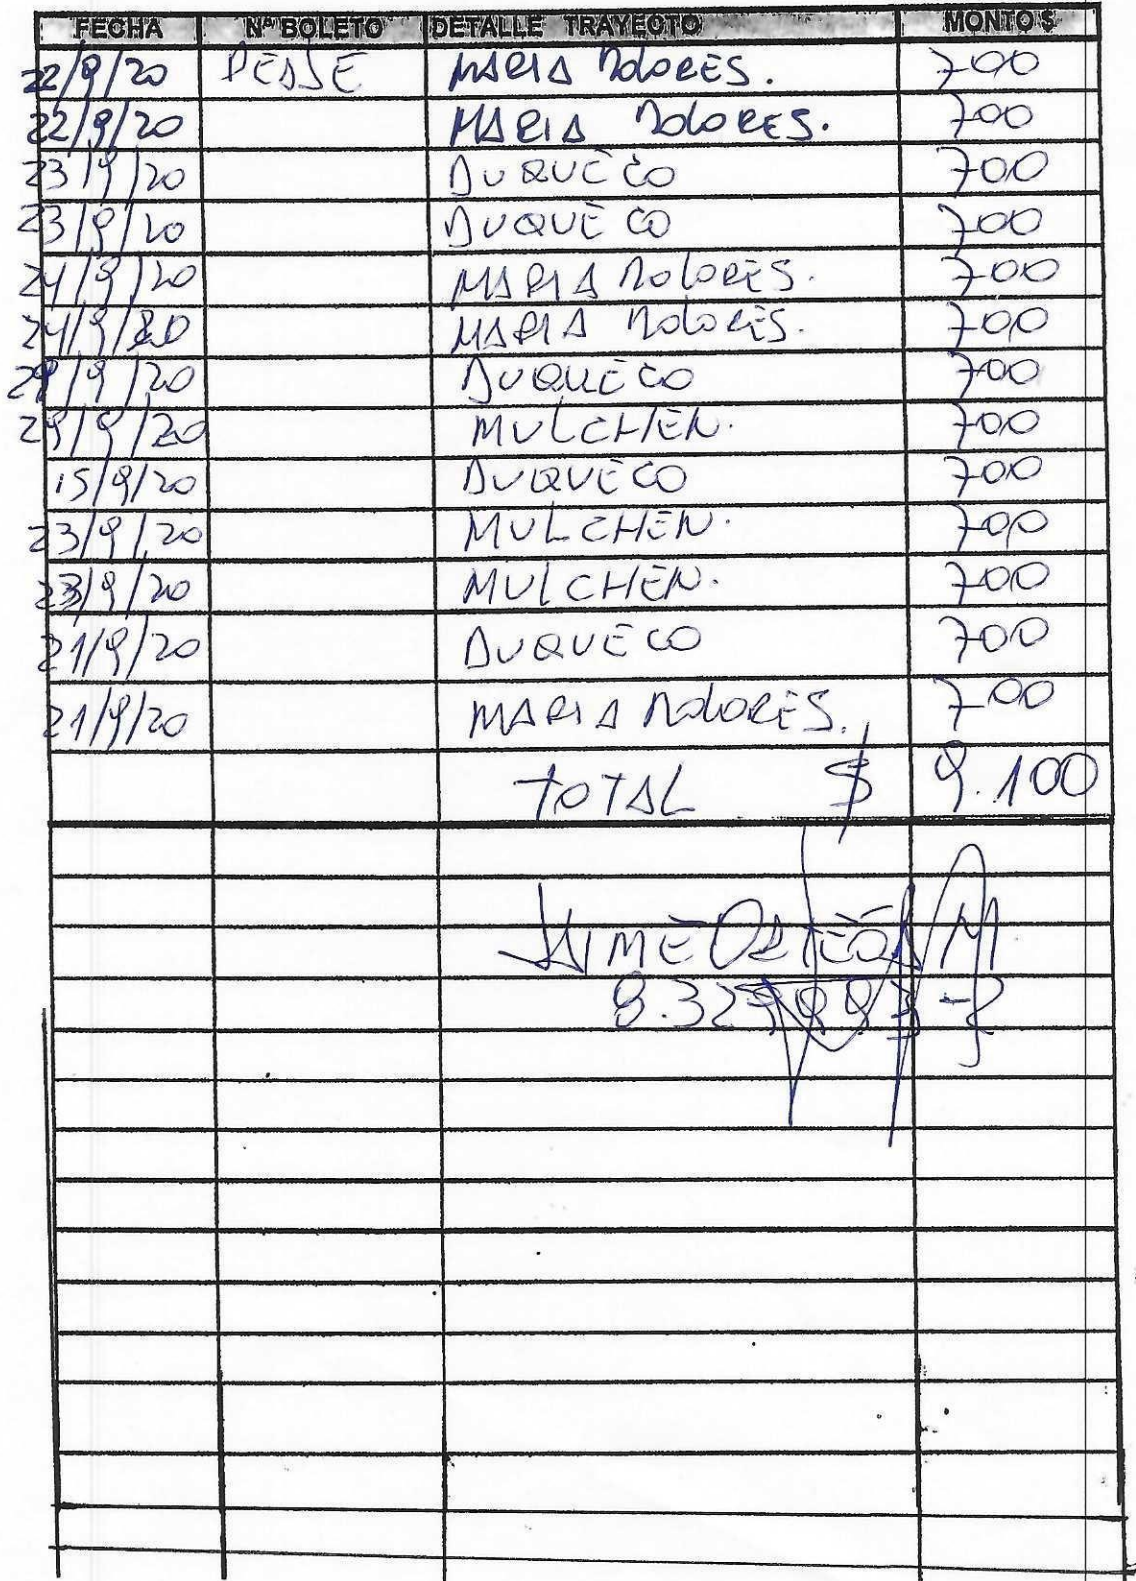 FECHA Nº BOLETO DETALLE TRAYECTO MONTO $
22/9/20 PEAJE MARIA DOLORES. 700
22/9/20 MARIA DOLORES. 700
23/9/20 DUQUECO 700
23/9/20 DUQUECO 700
24/9/20 MARIA DOLORES. 700
24/9/20 MARIA DOLORES. 700
/9/20 DUQUECO 700
/9/20 MULCHEN. 700
15/9/20 DUQUECO 700
23/9/20 MULCHEN. 700
23/9/20 MULCHEN. 700
21/9/20 DUQUECO 700
21/9/20 MARIA DOLORES. 700
TOTAL $ 9.100
JAIME ORTEGA M